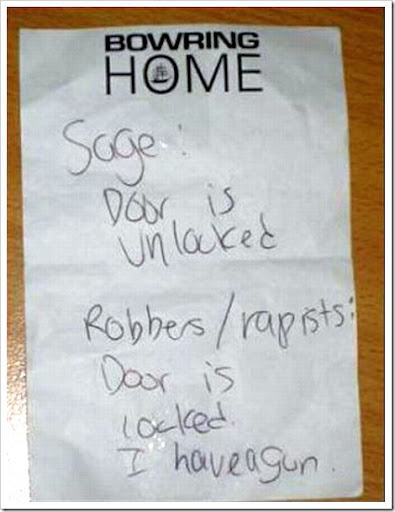 BOWRING
HOME
Sage:
Door is
unlocked
Robbers/rapists:
Door is
locked.
I have a gun.